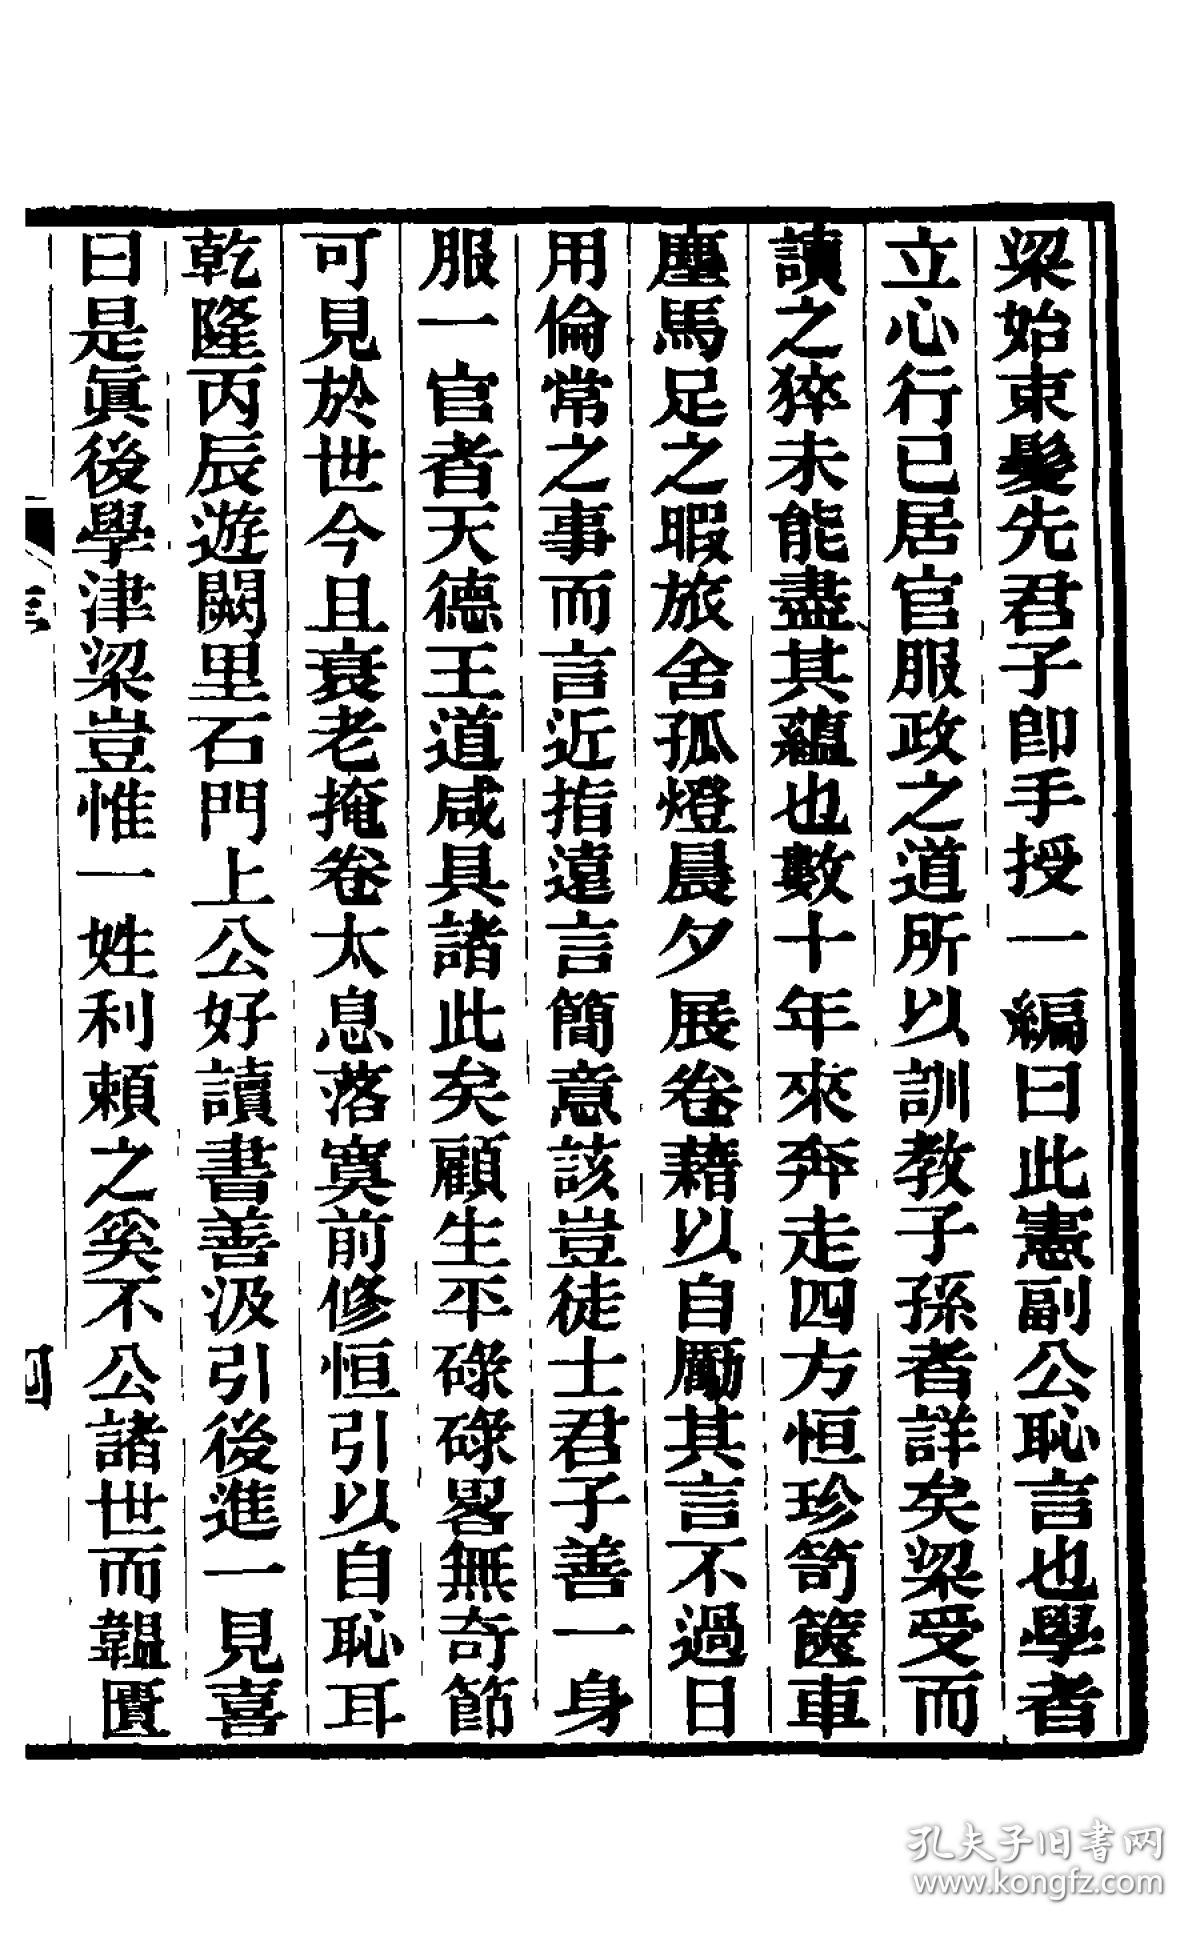 梁始束髮先君子卽手授一編曰此憲副公恥言也學者
立心行已居官服政之道所以訓教子孫者詳矣梁受而
讀之猝未能盡其蘊也數十年來奔走四方恒珍笥篋車
塵馬足之暇旅舍孤燈晨夕展卷藉以自勵其言不過日
用倫常之事而言近指遠言簡意該豈徒士君子善一身
服一官者天德王道咸具諸此矣顧生平碌碌畧無奇節
可見於世今且衰老掩卷太息落寞前修恒引以自恥耳
乾隆丙辰遊闕里石門上公好讀書善汲引後進一見喜
曰是眞後學津梁豈惟一姓利賴之奚不公諸世而韞匱
孔夫子旧书网
www.kongfz.com